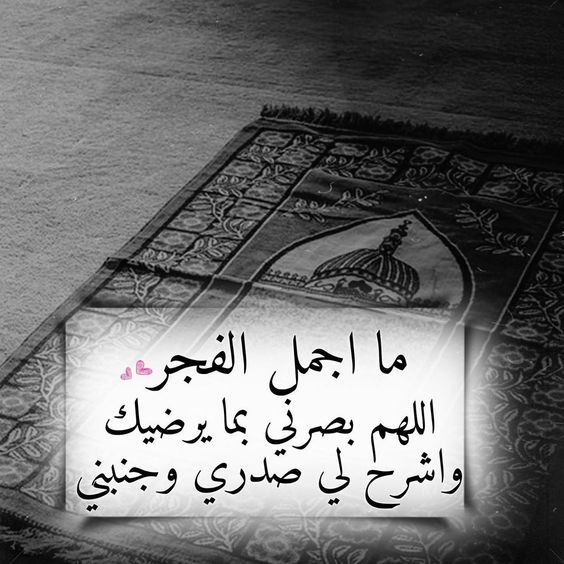 ما اجمل الفجر
اللهم بصرني بما يرضيك
واشرح لي صدري وجنبني